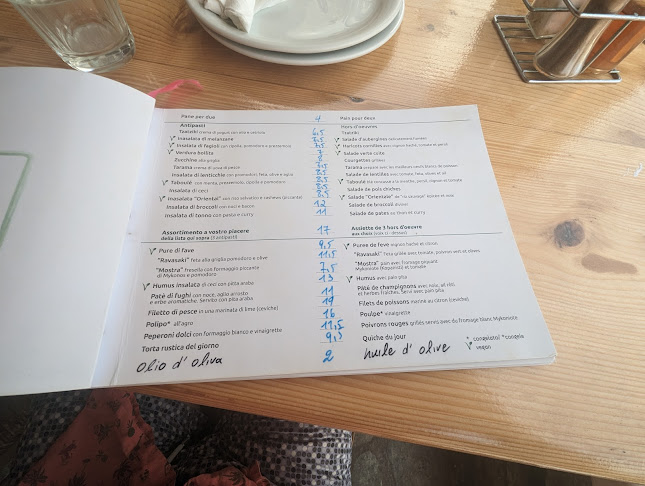 Pane per due 4 Pain pour deux
Antipasti Hors d'oeuvres
Tzatziki crema di yogurt con aglio e cetriolo 6,5 Tzatziki
Insalata di melanzane 7,5 Salade d'aubergines
Insalata di fagioli con cipolla, pomodoro e prezzemolo Haricots cornilles avec oignon haché, persil, tomate
Verdura bollita 7 Salade verte cuite
Zucchine alla griglia Courgettes grillées
Tarama crema di uova di pesce Tarama
Insalata di lenticchie con pomodorini, feta, olive e aglio Salade de lentilles avec tomate, feta, olives et ail
Tabouté con menta, prezzemolo, cipolla e pomodoro Tabouté
Insalata di ceci Salade de pois chiches
Insalata "Oriental" con riso selvatico e cashews Salade "Orientale"
Insalata di broccoli con noci e bacon 12 Salade de broccoli
Insalata di tonno con pasta e curry 11 Salade de pates au thon et curry
Assortimento a vostro piacere 17 Assiette de 3 hors d'oeuvre
della lista qui sopra (3 antipasti) aux choix (voir ci - dessus)
Pure di fave 9,5 Puree de feve oignon haché et citron
"Ravasaki" feta alla griglia pomodoro e olive 11,5 "Ravasaki" feta grillé avec tomate, poivron vert et olives
"Mostra" fresella con formaggio piccante "Mostra" pain avec fromage piquant
di Mykonos e pomodoro 7,5 Mykonoste (kopanisti) et tomate
Humus insalata di ceci con pitta araba 13 Humus avec pain pita
Patè di fughi con noce, aglio arrosto 11 Pâté de champignons avec noix, ail rôti
e erbe aromatiche. Servito con pita araba 19 et herbes fraîches. Servi avec pain pita
Filetto di pesce in una marinata di lime (ceviche) 16 Filets de poissons mariné au citron (ceviche)
Polipo* all'agro 11,5 Poulpe* vinaigrette
Peperoni dolci con formaggio bianco e vinaigrette Poivrons rouges grillés servis avec du fromage blanc Mykonoste
Torta rustica del giorno Quiche du jour
olio d' oliva 2 huile d' olive
congelato/ *congele
vegan